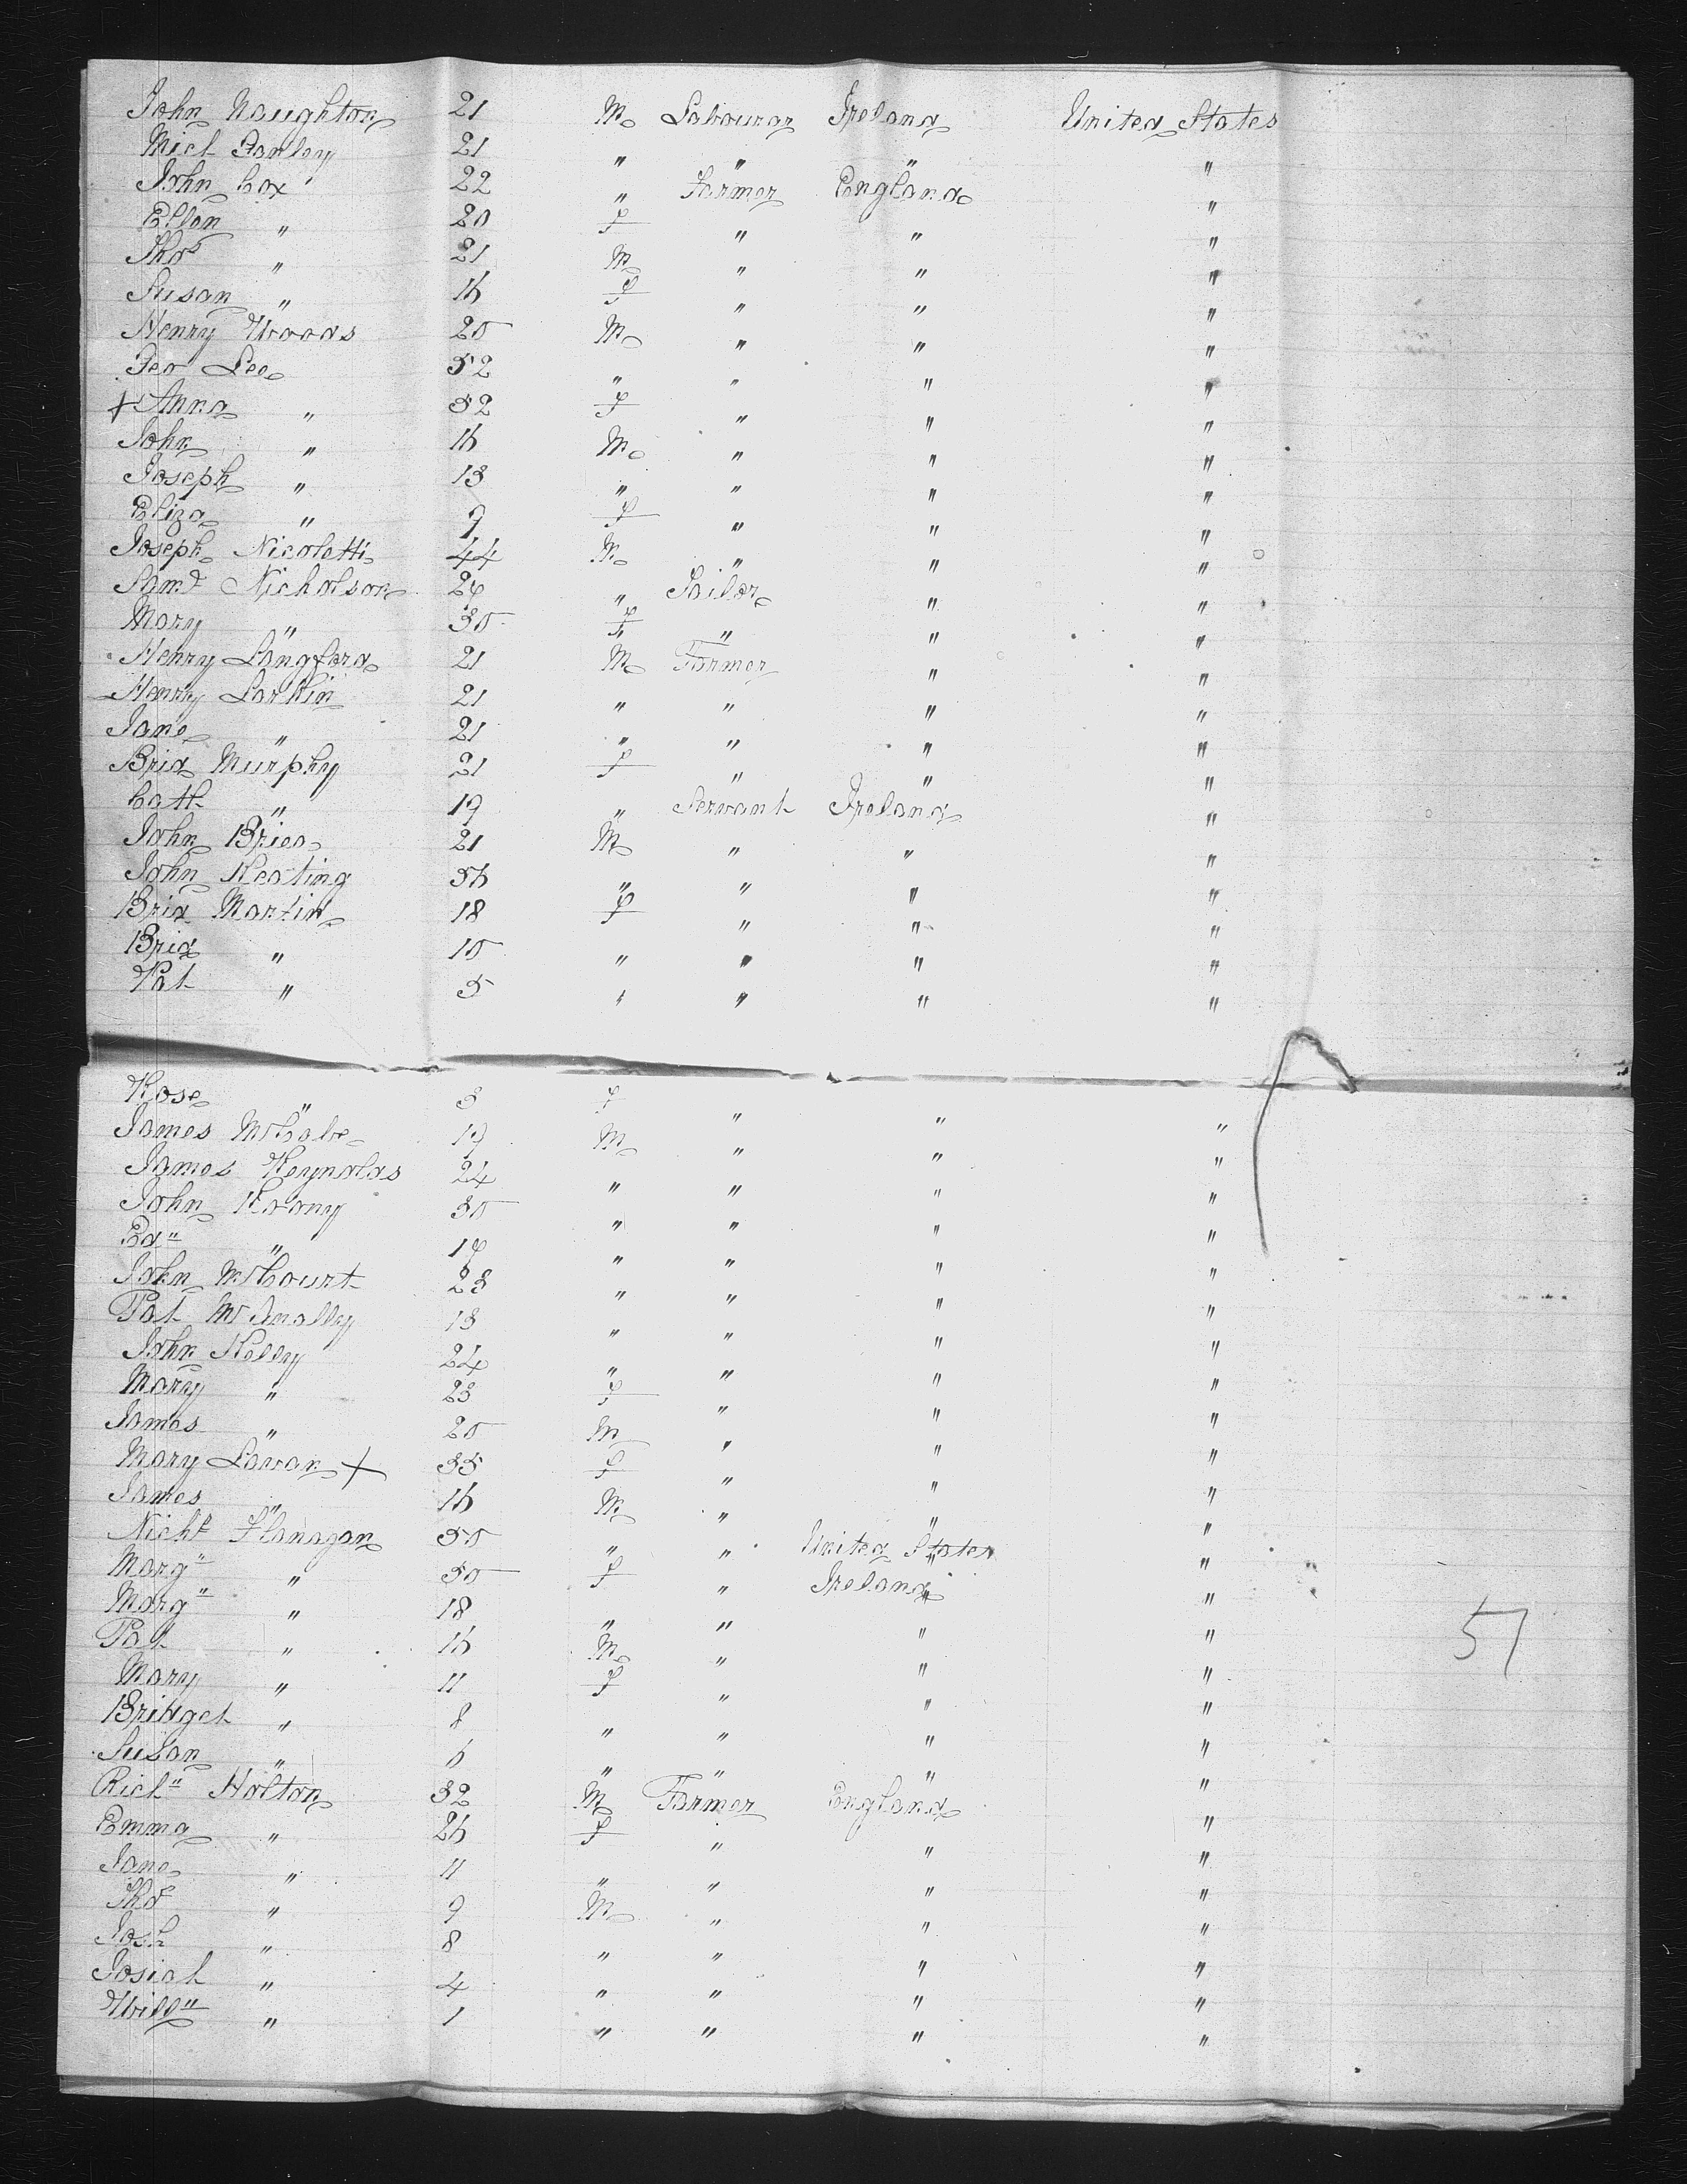 John Naughton 21 M Labourer Ireland United States
Mich Ganley 21 " " " "
John Cox 22 " Farmer England "
Ellen " 20 f " " "
Thos " 21 M " " "
Susan " 16 f " " "
Henry Woods 20 M " " "
Geo Lee 52 " " " "
+ Anna " 32 f " " "
John " 16 M " " "
Joseph " 13 " " " "
Eliza " 9 f " " "
Joseph Nicoletti 44 M " " "
Saml Nicholson 24 " Sailor " "
Mary " 30 f " " "
Henry Langford 21 M Farmer " "
Henry Larkin 21 " " " "
Jane " 21 " " " "
Brid Murphy 21 f " " "
Cath " 19 " Servant Ireland "
John Brien 21 M " " "
John Keating 56 " " " "
Brid Martin 18 f " " "
Brid " 10 " " " "
Pat " 5 " " " "
Rose " 3 f " " "
James McCabe 19 M " " "
James Reynolds 24 " " " "
John Roony 30 " " " "
Ed" " 19 " " " "
John McCourt 23 " " " "
Pat McAnally 18 " " " "
John Kelly 24 " " " "
Mary " 23 f " " "
James " 20 M " " "
Mary Lavan + 35 f " " "
James " 16 M " " "
Nichs Flanagan 50 " " United States "
Marg" " 50 f " Ireland "
Marg" " 18 " " " "
Pat " 16 M " " "
Mary " 11 f " " "
Bridget " 8 " " " "
Susan " 6 " " " "
Rich" Holton 32 M Farmer England "
Emma " 26 f " " "
Jane " 11 " " " "
Thos " 9 M " " "
Josh " 8 " " " "
Josiah " 4 " " " "
Will" " 1 " " " "
57